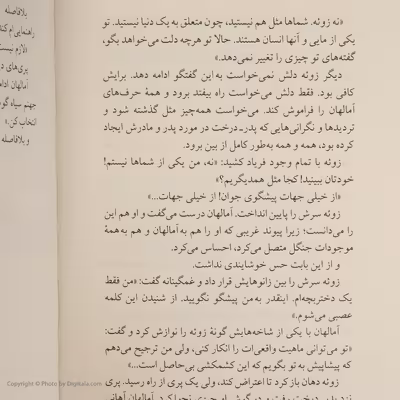 «نه زوئه. شماها مثل هم نیستید، چون متعلق به یک دنیا نیستید. تو
یکی از مایی و آنها انسان هستند. حالا تو هرچه دلت می‌خواهد بگو،
گفته‌های تو چیزی را تغییر نمی‌دهد.»
دیگر زوئه دلش نمی‌خواست به این گفتگو ادامه دهد. برایش
کافی بود. فقط دلش می‌خواست راه بیفتد برود و همهٔ حرف‌های
آمالهان را فراموش کند. می‌خواست همه‌چیز مثل گذشته شود و
تردیدها و نگرانی‌هایی که پدر ـ درخت در مورد پدر و مادرش ایجاد
کرده بود، همه و همه به‌طور کامل از بین برود.
زوئه با تمام وجود فریاد کشید: «نه، من یکی از شماها نیستم!
خودتان ببینید! کجا مثل همدیگریم؟»
«از خیلی جهات پیشگوی جوان! از خیلی جهات...»
زوئه سرش را پایین انداخت. آمالهان درست می‌گفت و او هم این
را می‌دانست؛ زیرا پیوند غریبی که او را هم به آمالهان و هم به همهٔ
موجودات جنگل متصل می‌کرد، احساس می‌کرد.
و از این بابت حس خوشایندی نداشت.
زوئه سرش را بین زانوهایش قرار داد و غمگینانه گفت: «من فقط
یک دختربچه‌ام. اینقدر به من پیشگو نگویید. از شنیدن این کلمه
عصبی می‌شوم.»
آمالهان با یکی از شاخه‌هایش گونهٔ زوئه را نوازش کرد و گفت:
«تو می‌توانی ماهیت واقعی‌ات را انکار کنی، ولی من ترجیح می‌دهم
که پیشاپیش به تو بگویم که این کشمکشی بی‌حاصل است...»
زوئه دهان باز کرد تا اعتراض کند، ولی یک پری از راه رسید. پری
بلافاصله
راهنمایی‌ام
پری‌های
آمالهان
جهنم سیاه
انتخاب کن.»
و بلافاصله
Copyright © Photo by Digikala.com